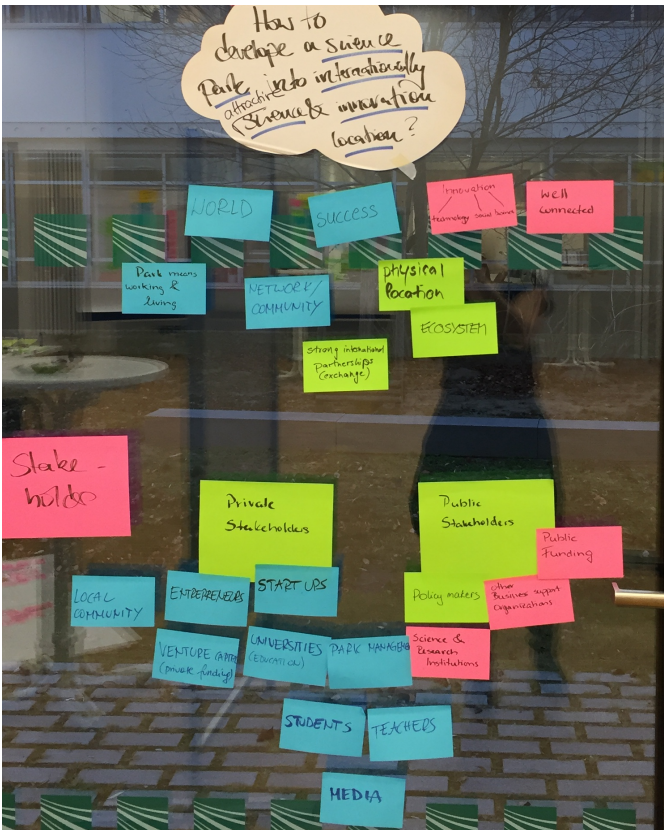 How to
develope a science
Park into internationally
attractive
science & innovation
location?
WORLD
SUCCESS
Innovation
technology social business
Well
Connected
Park means
working &
living
NETWORK/
COMMUNITY
physical
location
ECOSYSTEM
strong international
Partnerships
(exchange)
Stake-
holder
Private
Stakeholders
Public
Stakeholders
Public
Funding
LOCAL
COMMUNITY
ENTREPRENEURS
START UPS
Policy makers
other
Business support
Organizations
VENTURE CAPITAL
(private funding)
UNIVERSITIES
(EDUCATION)
PARK MANAGEME
Science &
Research
Institutions
STUDENTS
TEACHERS
MEDIA